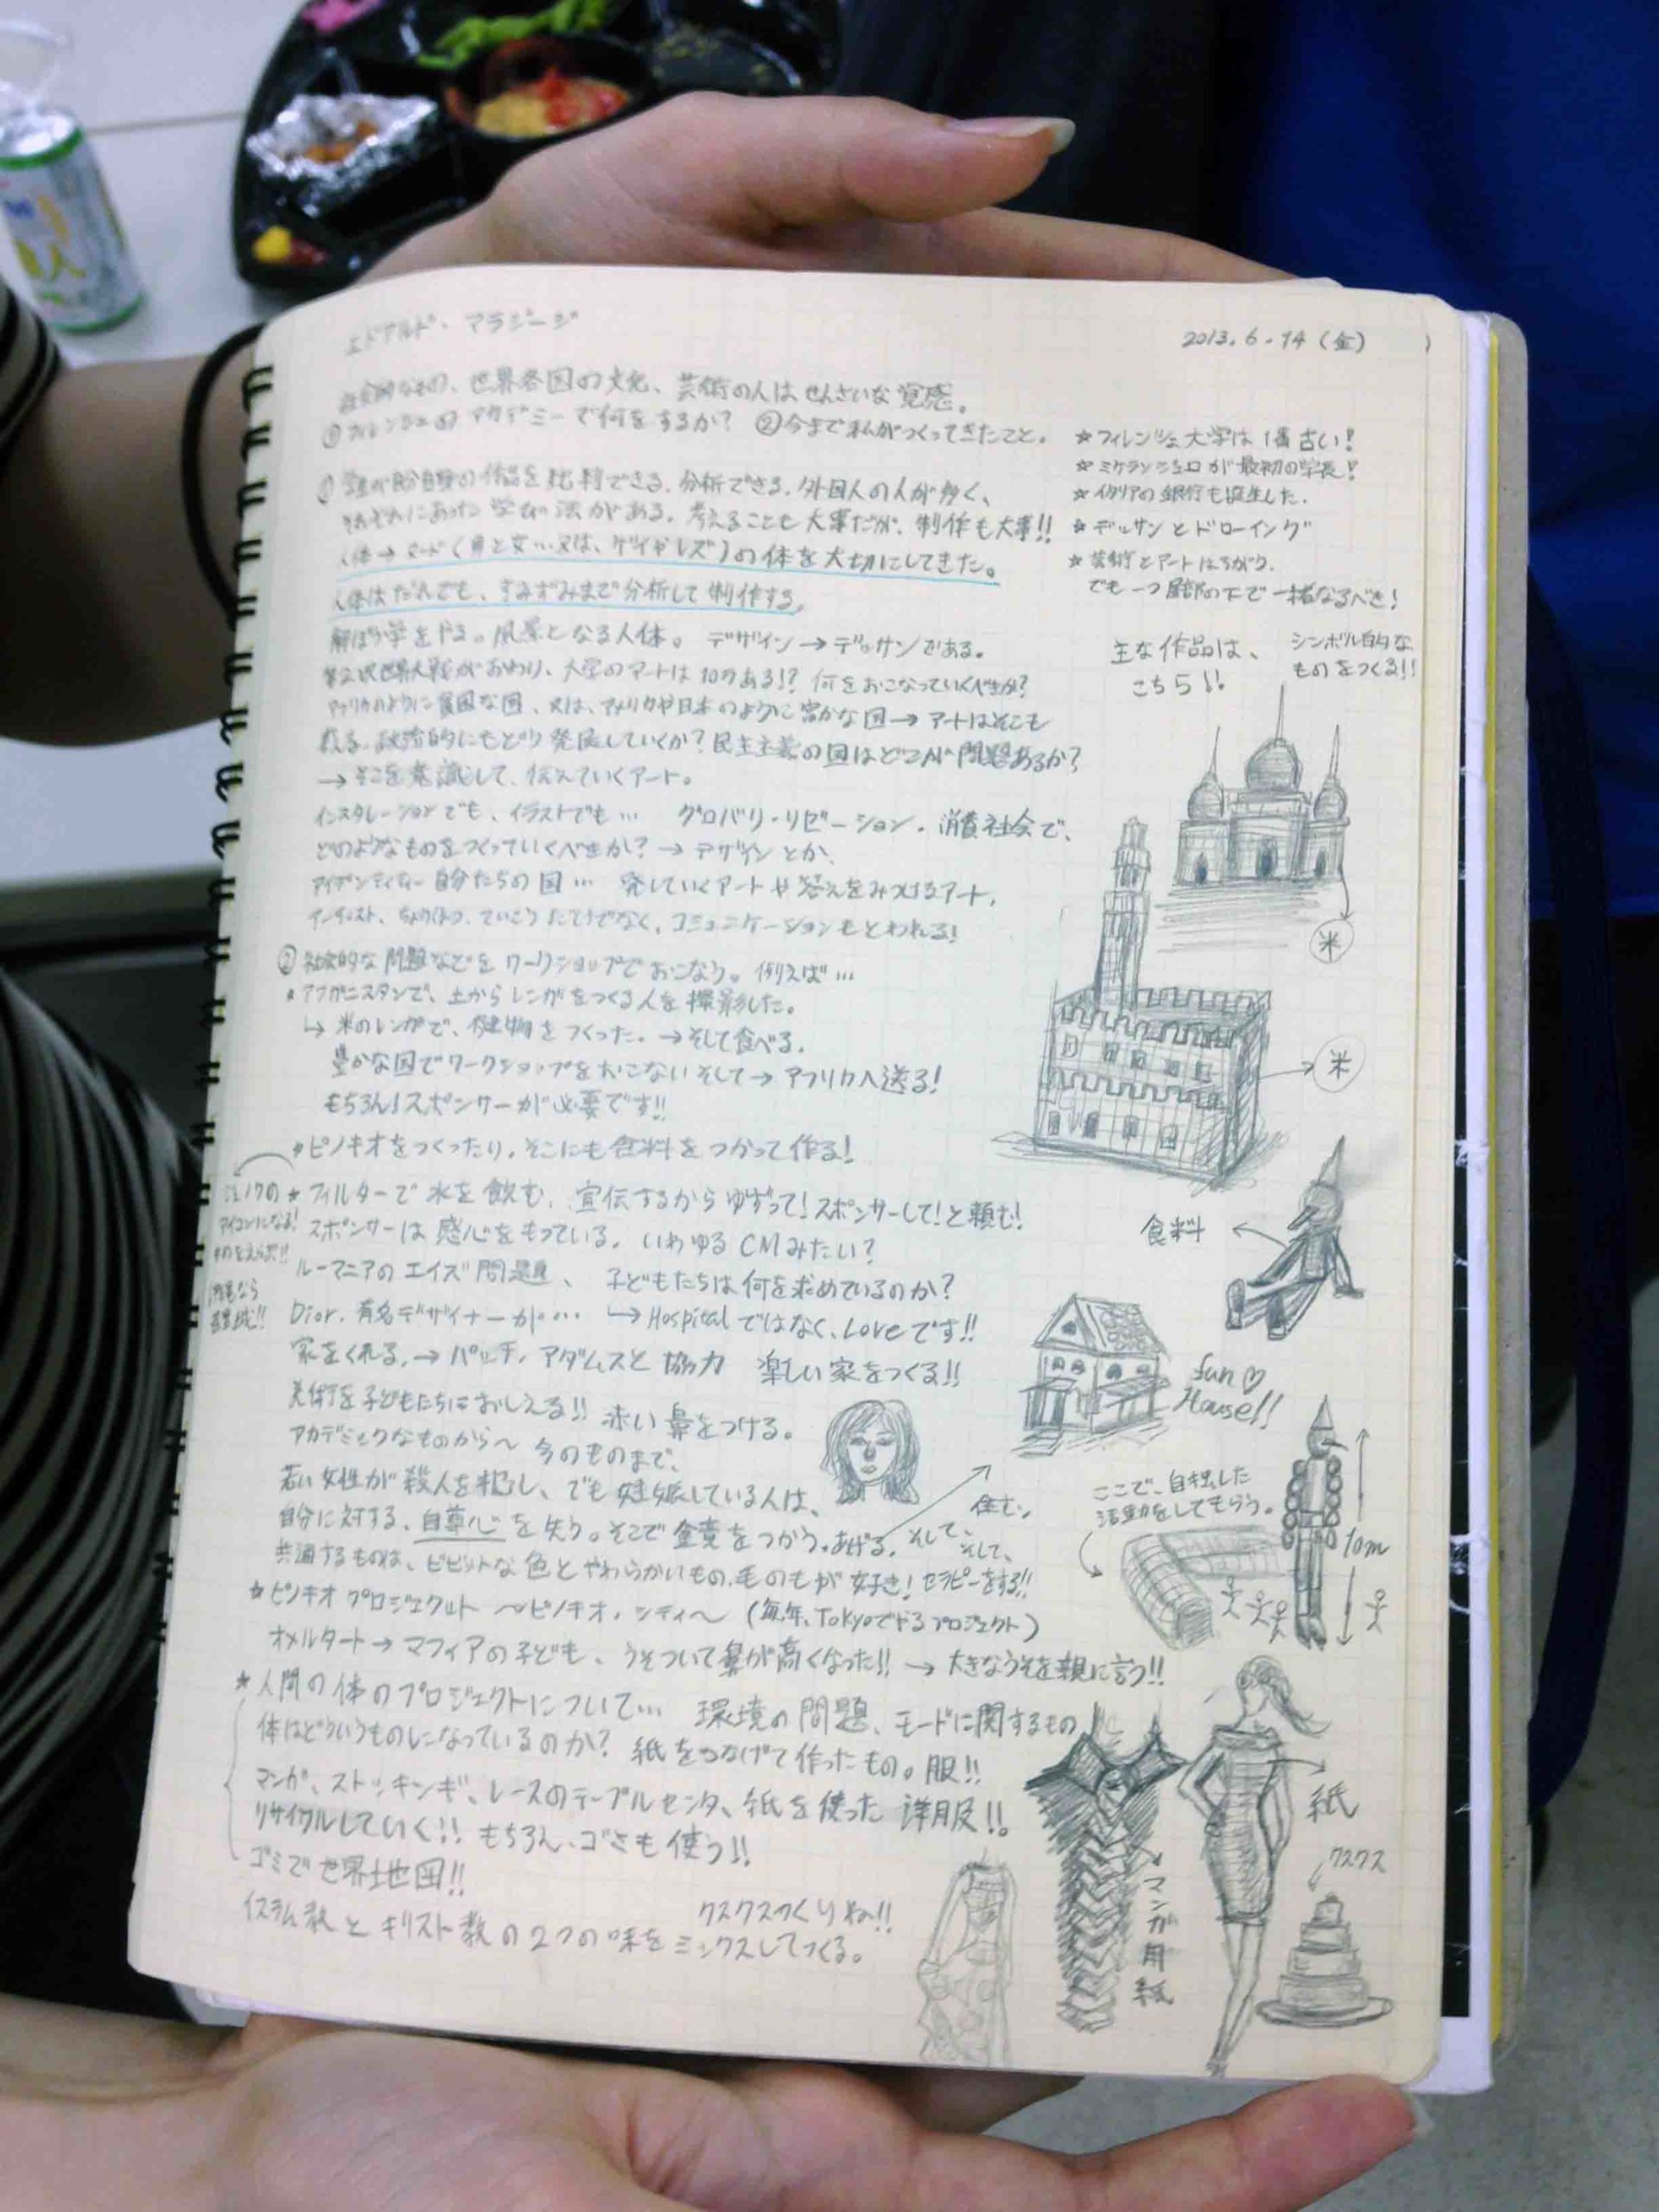 エドアルド・マラジージ
2013.6.14(金)
社会的なもの、世界各国の文化、芸術の人はせんさいな覚感。
①フィレンツェのアカデミーで何をするか? ②今まで私がつくってきたこと。
☆フィレンツェ大学は1番古い!
☆ミケランジェロが最初の学長!
☆イタリアの銀行も誕生した.
☆デッサンとドローイング
☆芸術とアートはちがう.
でも一つ屋根の下で一緒なるべき!
① 自分自身の作品を批判できる.分析できる.外国人の人が多く、
それぞれにあった学び法がある.考えることも大事だが、制作も大事!!
人体→ヌード(男と女…又は、ゲイやレズ)の体を大切にしてきた。
人体はだれでも、すみずみまで分析して制作する。
解ぼう学をやる。風景となる人体。 デザイン→デッサンである。
第2次世界大戦がおわり、大学のアートは10のある!? 何をおこなっていくべきか?
アフリカのように貧困な国、又は、アメリカや日本のように富かな国→アートはそこも
政治的にもどう発展していくか?民主主義の国はどこが問題あるか?
→そこを意識して、伝えていくアート。
インスタレーションでも、イラストでも… グロバリ・リゼーション.消費社会で、
どのようなものをつくっていくべきか?→デザインとか、
アイデンティティー自分たちの国… 発していくアートや答えをみつけるアート.
アーティスト、ていこうだけでなく、コミュニケーションもとわれる!
主な作品は、
こちら!!
シンボル的な
ものをつくる!!
米
米
② 社会的な問題などをワークショップでおこなう。例えば…
★アフガニスタンで、土からレンガをつくる人を撮影した。
↳米のレンガで、建物をつくった.→そして食べる.
豊かな国でワークショップをおこないそして→アフリカへ送る!
もちろん!スポンサーが必要です!!
★ピノキオをつくったり,そこにも食料をつかって作る!
食料
☆フィルターで水を飲む、宣伝するからゆずって!スポンサーして!と頼む!
スポンサーは感心をもっている. いわゆるCMみたい?
アイコンになる!
ものをえらぶ!!
ルーマニアのエイズ問題、 子どもたちは何を求めているのか?
Dior.有名デザイナーが… ↳Hospitalではなく、Loveです!!
家をくれる,→パッチ・アダムスと協力 楽しい家をつくる!!
fun♡
House!!
美術を子どもたちにおしえる!! 赤い鼻をつける。
アカデミックなものから〜 今のものまで、
若い女性が殺人を犯し、でも妊娠している人は、
自分に対する、自尊心を失う。そこで金賞をつかう.あげる. そして、
住む。
そして、
共通するものは、ビビットな色とやわらかいもの.毛のもが好き!セラピーをする!!
ここで、自立した
活動をしてもらう。
10m
☆ピノキオプロジェクト 〜ピノキオ・シティ〜 (毎年、Tokyoでやるプロジェクト)
オメルタート→マフィアの子ども、うそついて鼻が高くなった!!→大きなうそを親に言う!!
★人間の体のプロジェクトについて… 環境の問題、モードに関するもの
体はどういうものになっているのか? 紙をつなげて作ったもの。服!!
マンガ、ストッキンギ、レースのテーブルセンタ、紙を使った洋服!!
リサイクルしていく!! もちろん、ゴミも使う!!
ゴミで世界地図!!
クスクスつくりね!!
イスラム教とキリスト教の2つの味をミックスしてつくる。
紙
マンガ用紙
クスクス